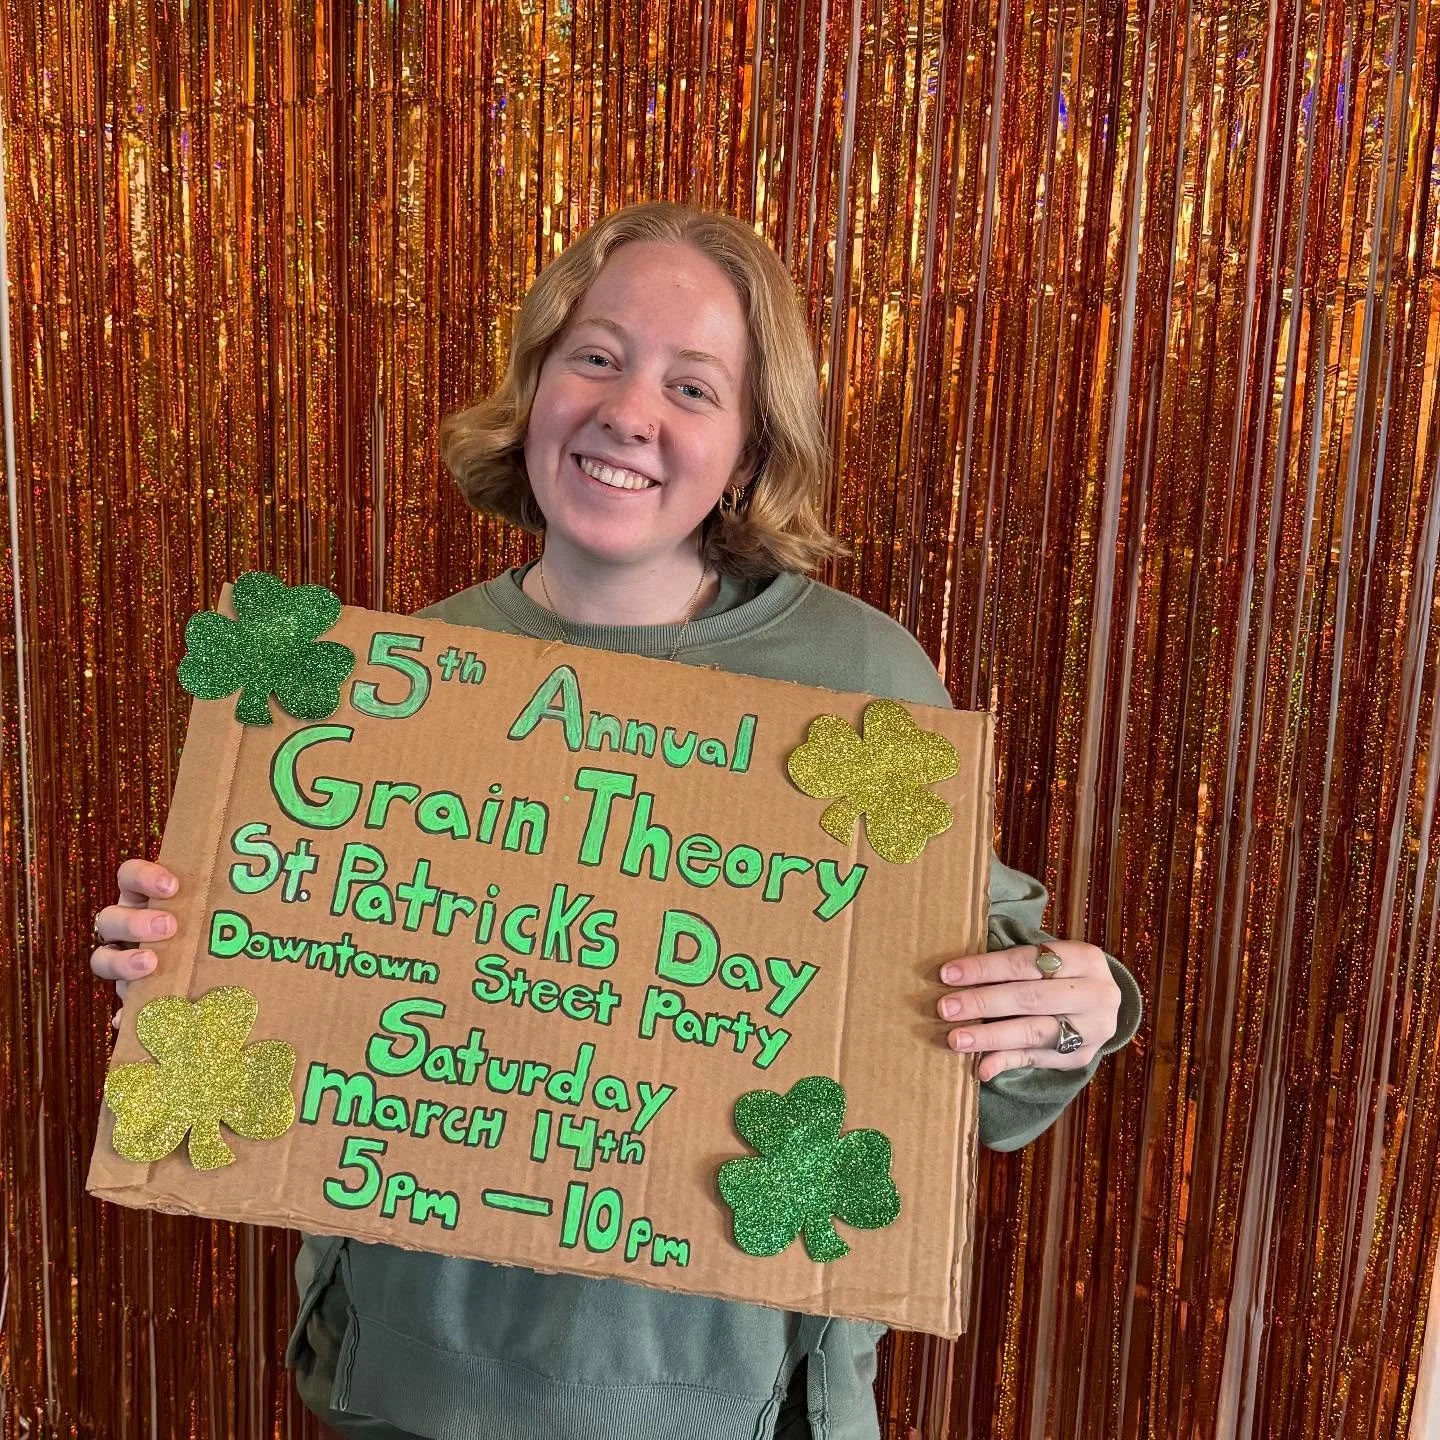 5th Annual
Grain Theory
St. Patricks Day
Downtown Street Party
Saturday
March 14th
5pm — 10pm